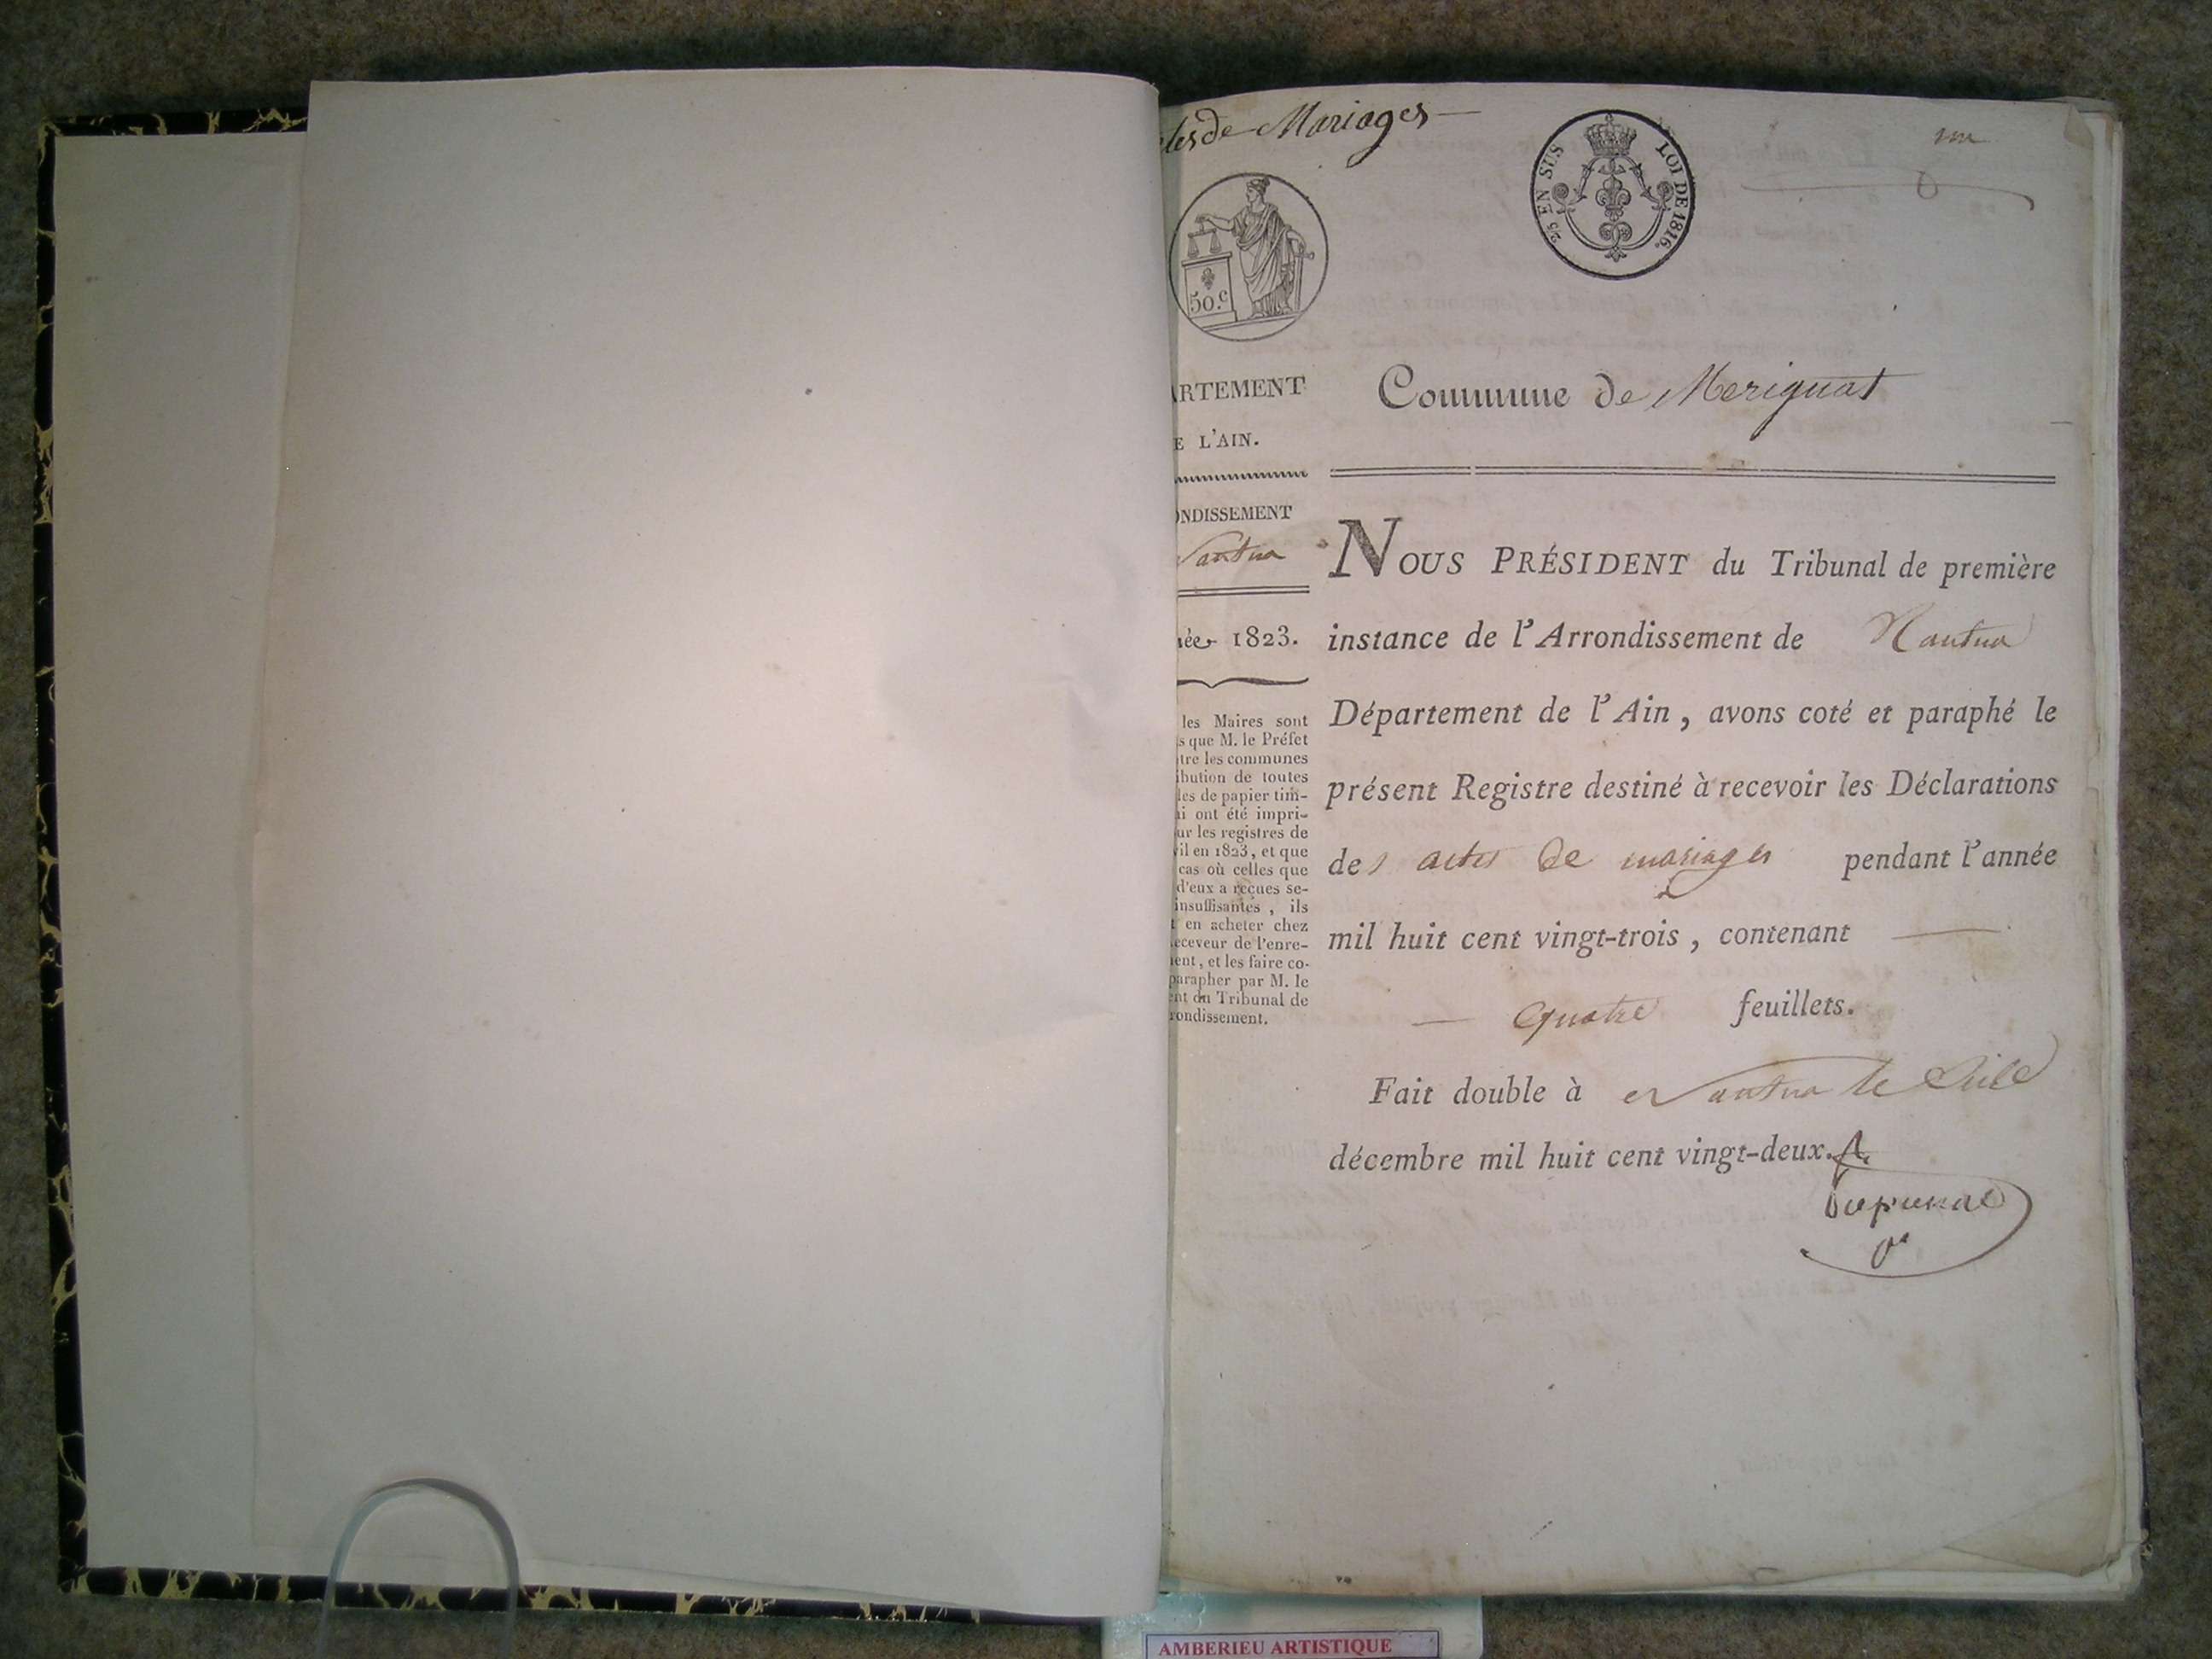 de Mariages
25 EN SUS
LOI DE 1816.
un
50.c
ARTEMENT
E L'AIN.
ONDISSEMENT
Nantua
née 1823.
les Maires sont
s que M. le Préfet
tre les communes
ibution de toutes
les de papier tim-
i ont été impri-
ur les registres de
vil en 1823, et que
cas où celles que
d'eux a reçues se-
insuffisantes, ils
t en acheter chez
eceveur de l'enre-
ent, et les faire co-
parapher par M. le
nt du Tribunal de
rondissement.
Commune de Merignat
NOUS PRÉSIDENT du Tribunal de première
instance de l'Arrondissement de Nantua
Département de l'Ain, avons coté et paraphé le
présent Registre destiné à recevoir les Déclarations
des actes de mariages pendant l'année
mil huit cent vingt-trois, contenant —
— quatre feuillets.
Fait double à Nantua le
décembre mil huit cent vingt-deux.
AMBERIEU ARTISTIQUE